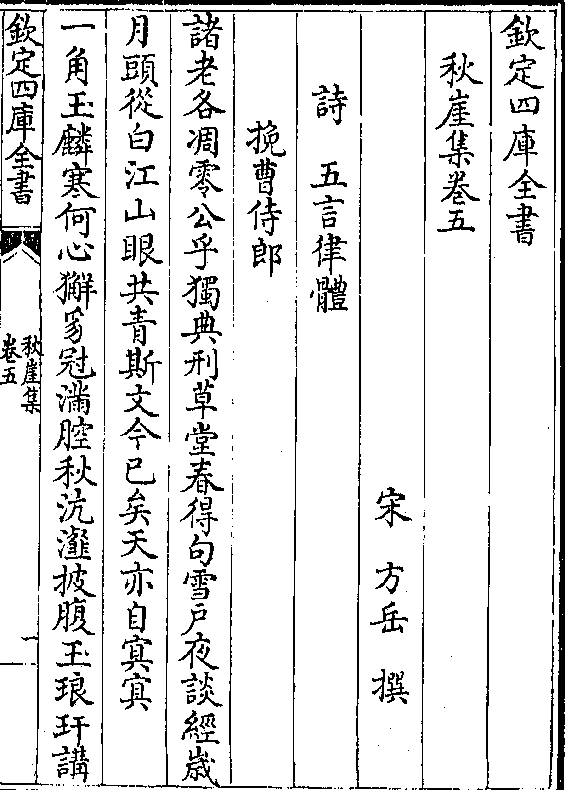 欽定四庫全書
秋崖集卷五
宋　方岳　撰
詩　五言律體
挽曹侍郎
諸老各凋零公乎獨典刑草堂春得句雪戶夜談經歲
月頭從白江山眼共青斯文今已矣天亦自冥冥
一角玉麟寒何心獬豸冠滿腔秋沆瀣披腹玉琅玕講
欽定四庫全書
秋崖集
卷五
一